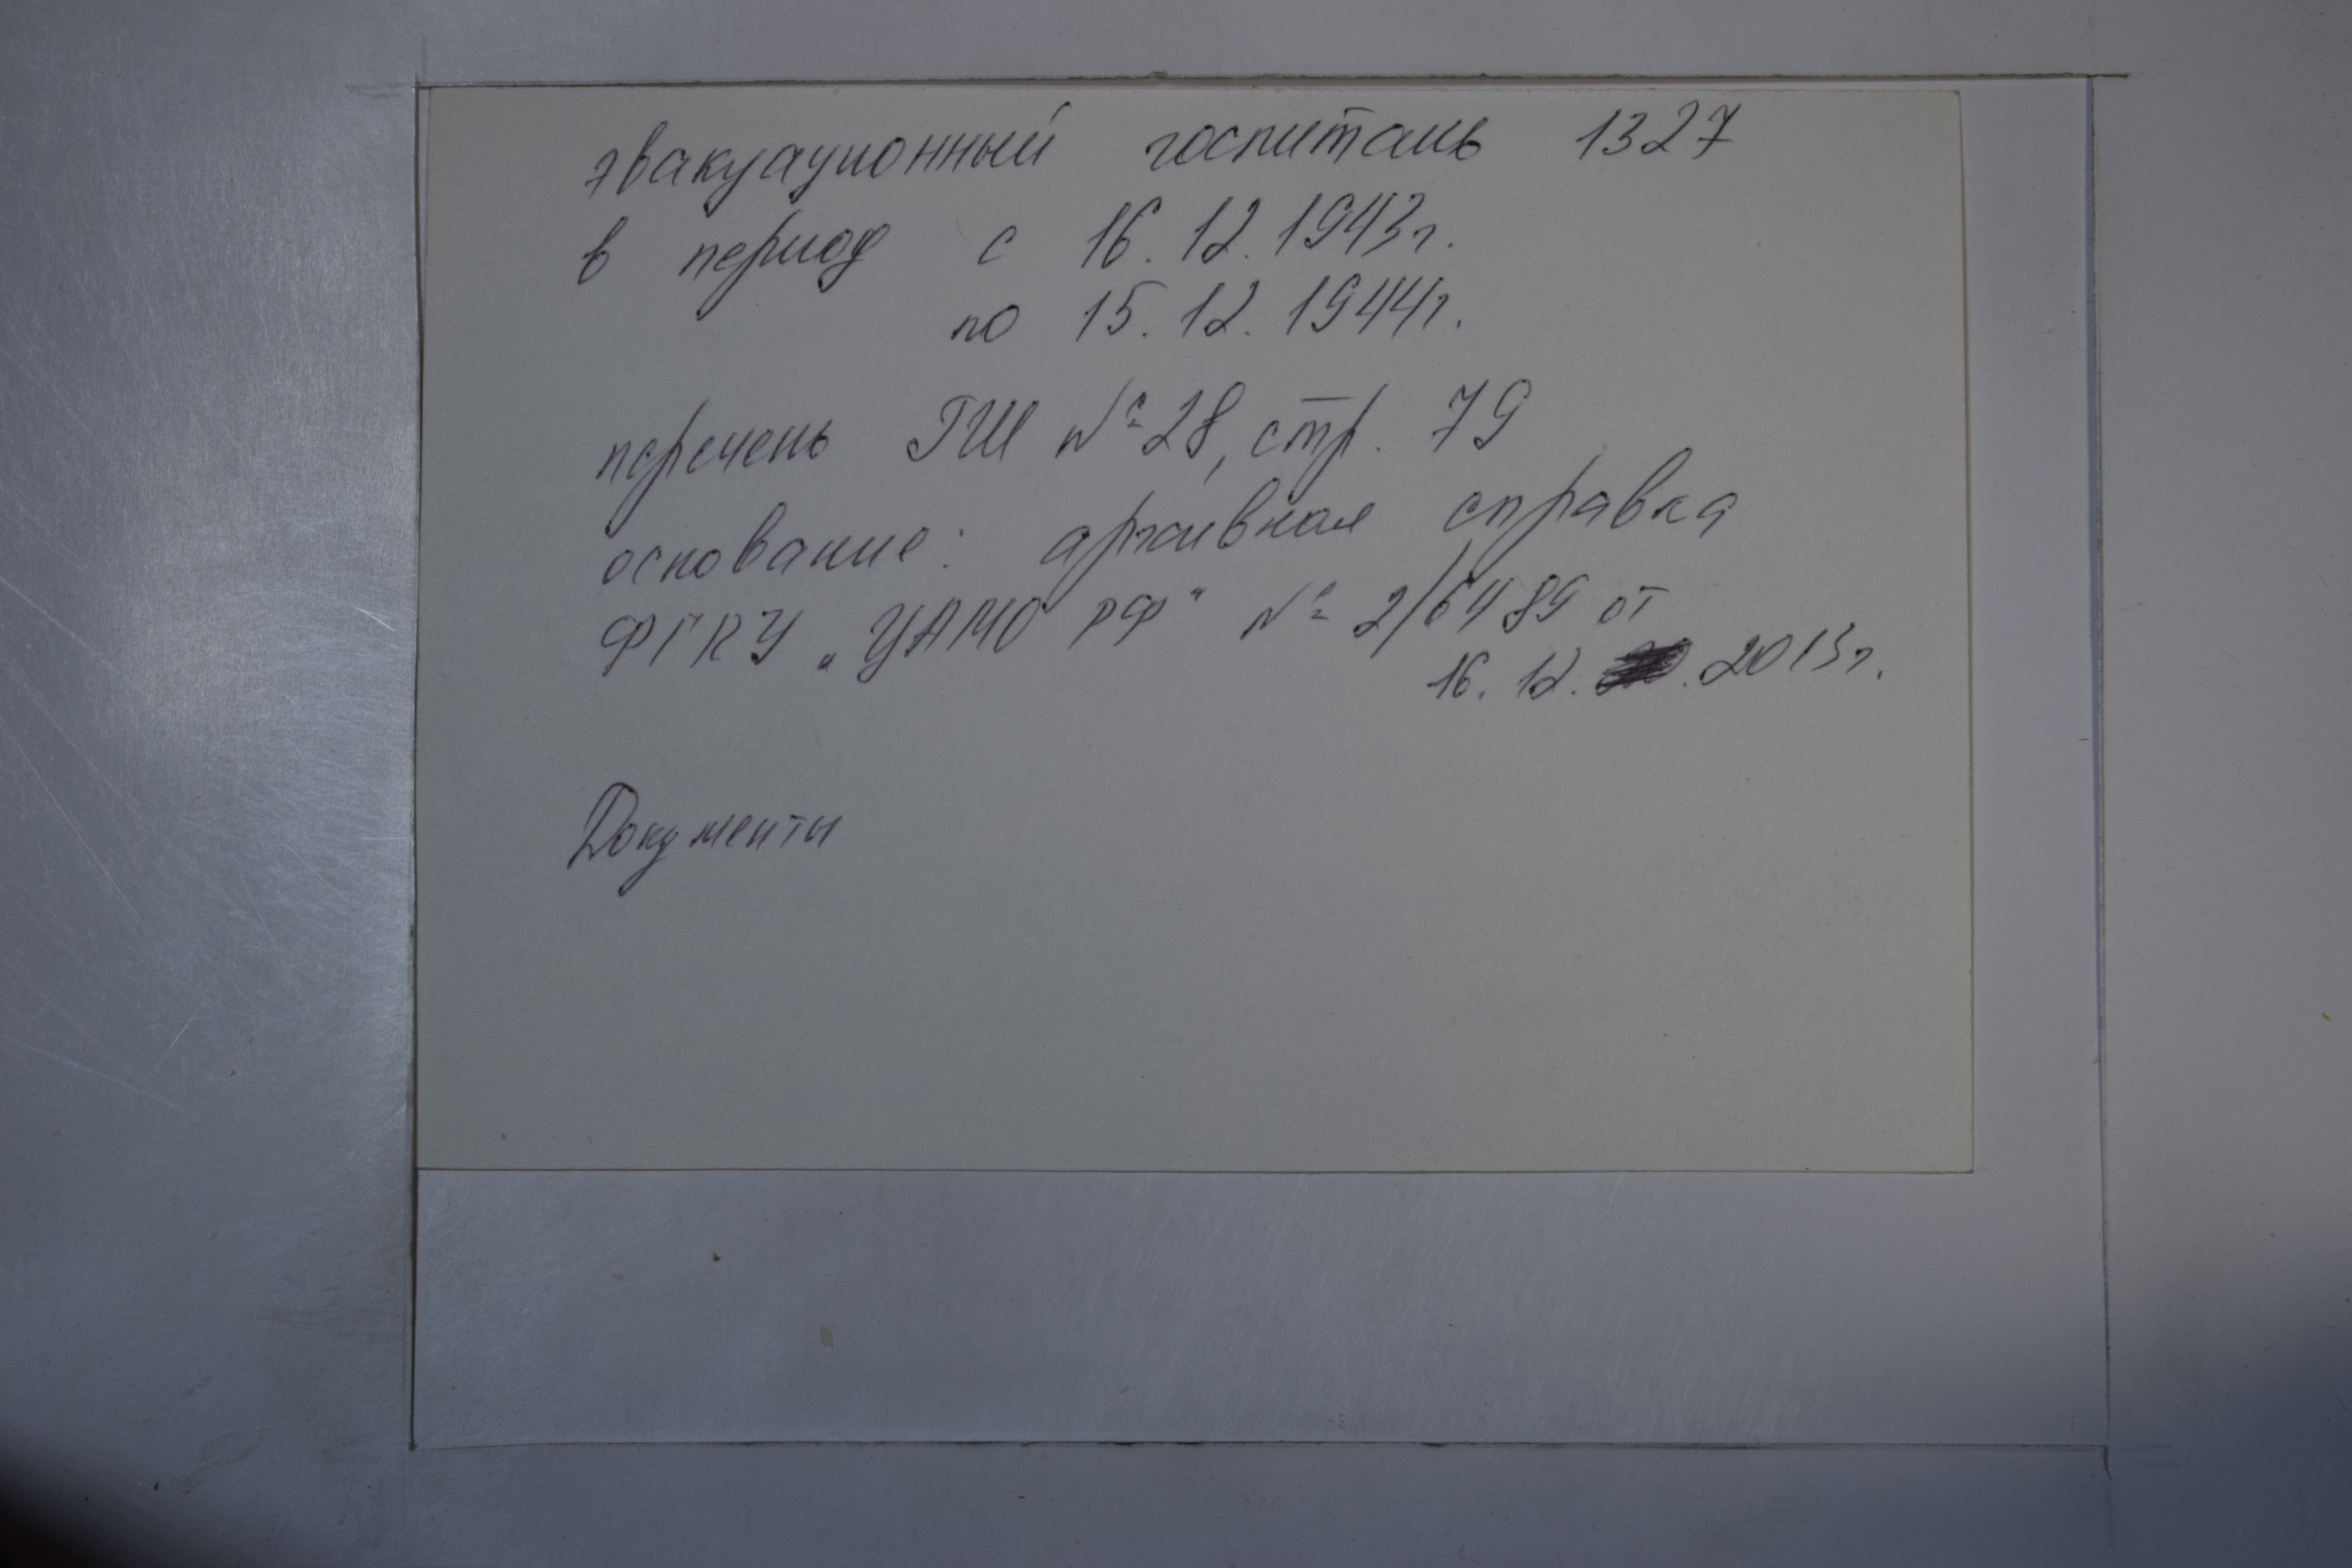 эвакуационный госпиталь 1327
в период с 16.12.1943г.
по 15.12.1944г.
перечень ГШ № 28, стр. 79
основание: архивная справка
ФГКУ „ЦАМО РФ“ № 2/6489 от
16.12. . 2013г.
Документы